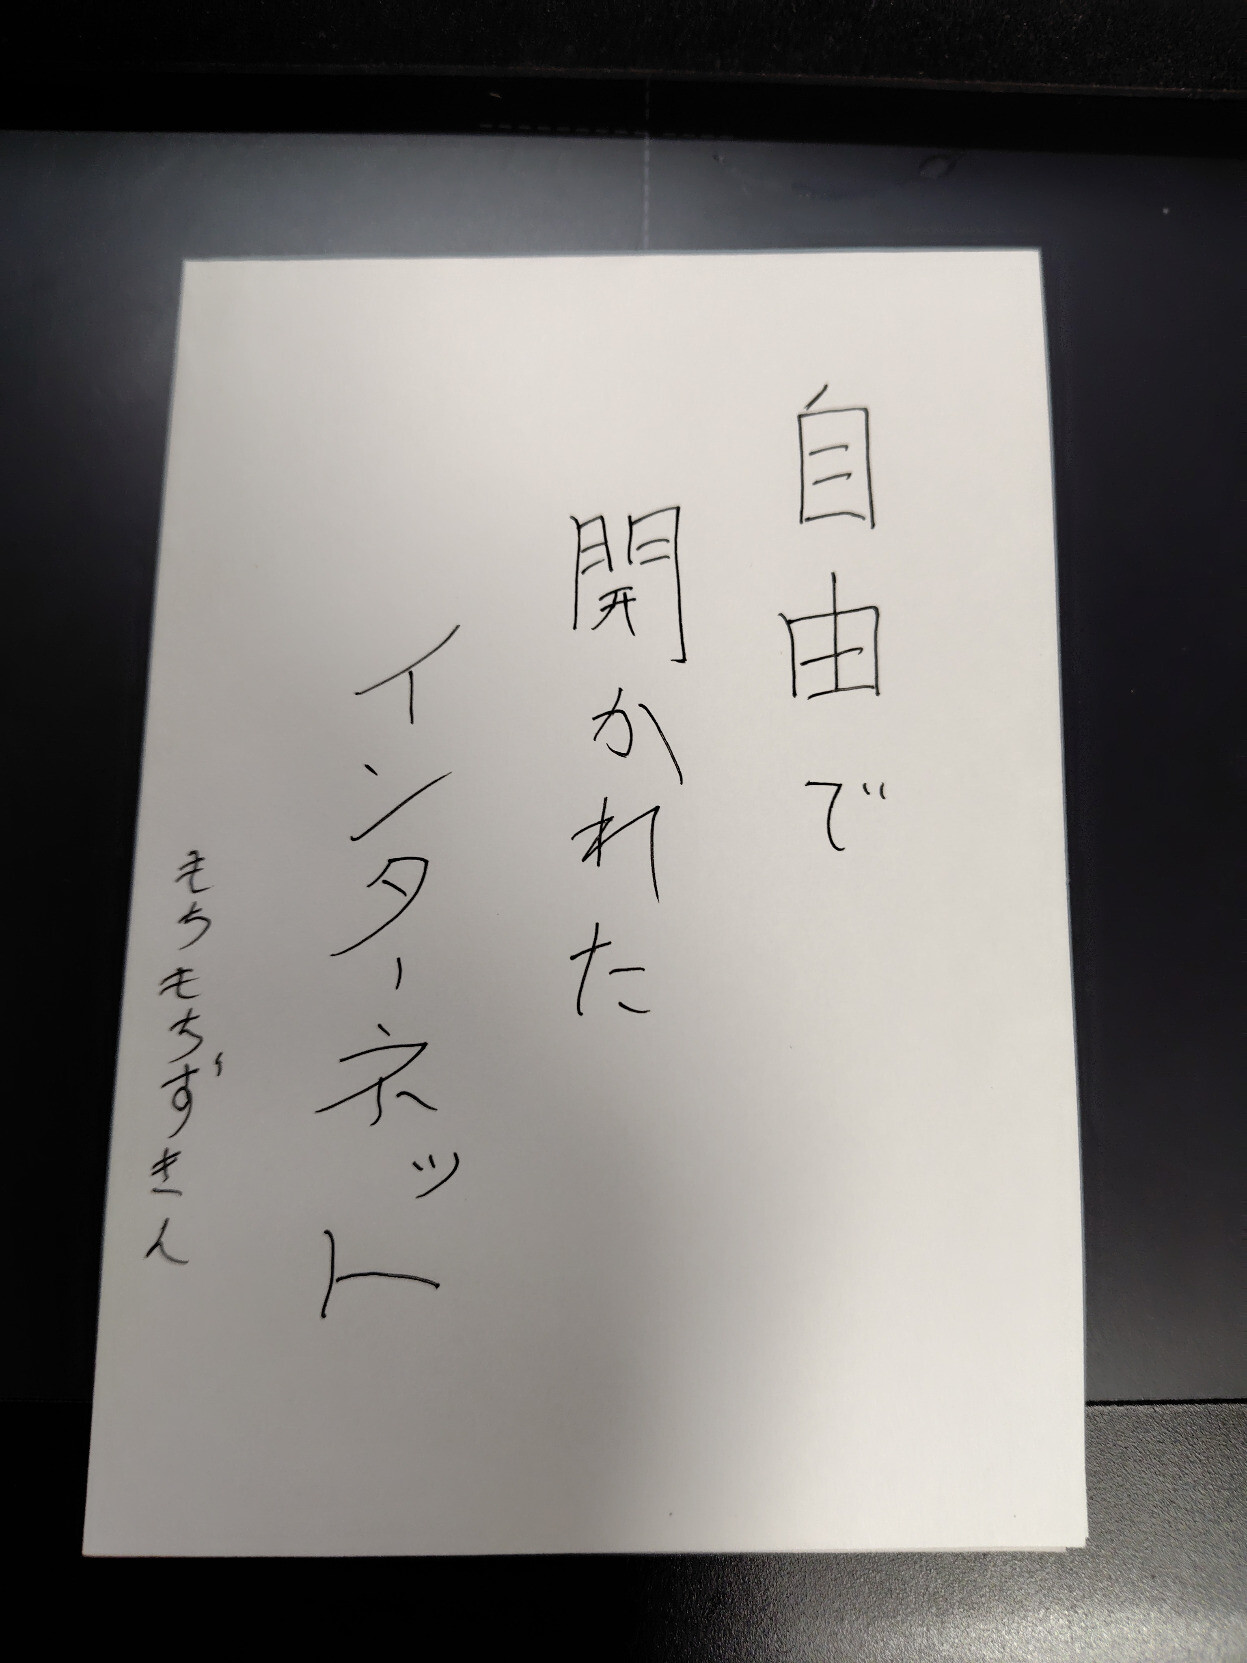 自由で
開かれた
インターネット
もちもちずきん